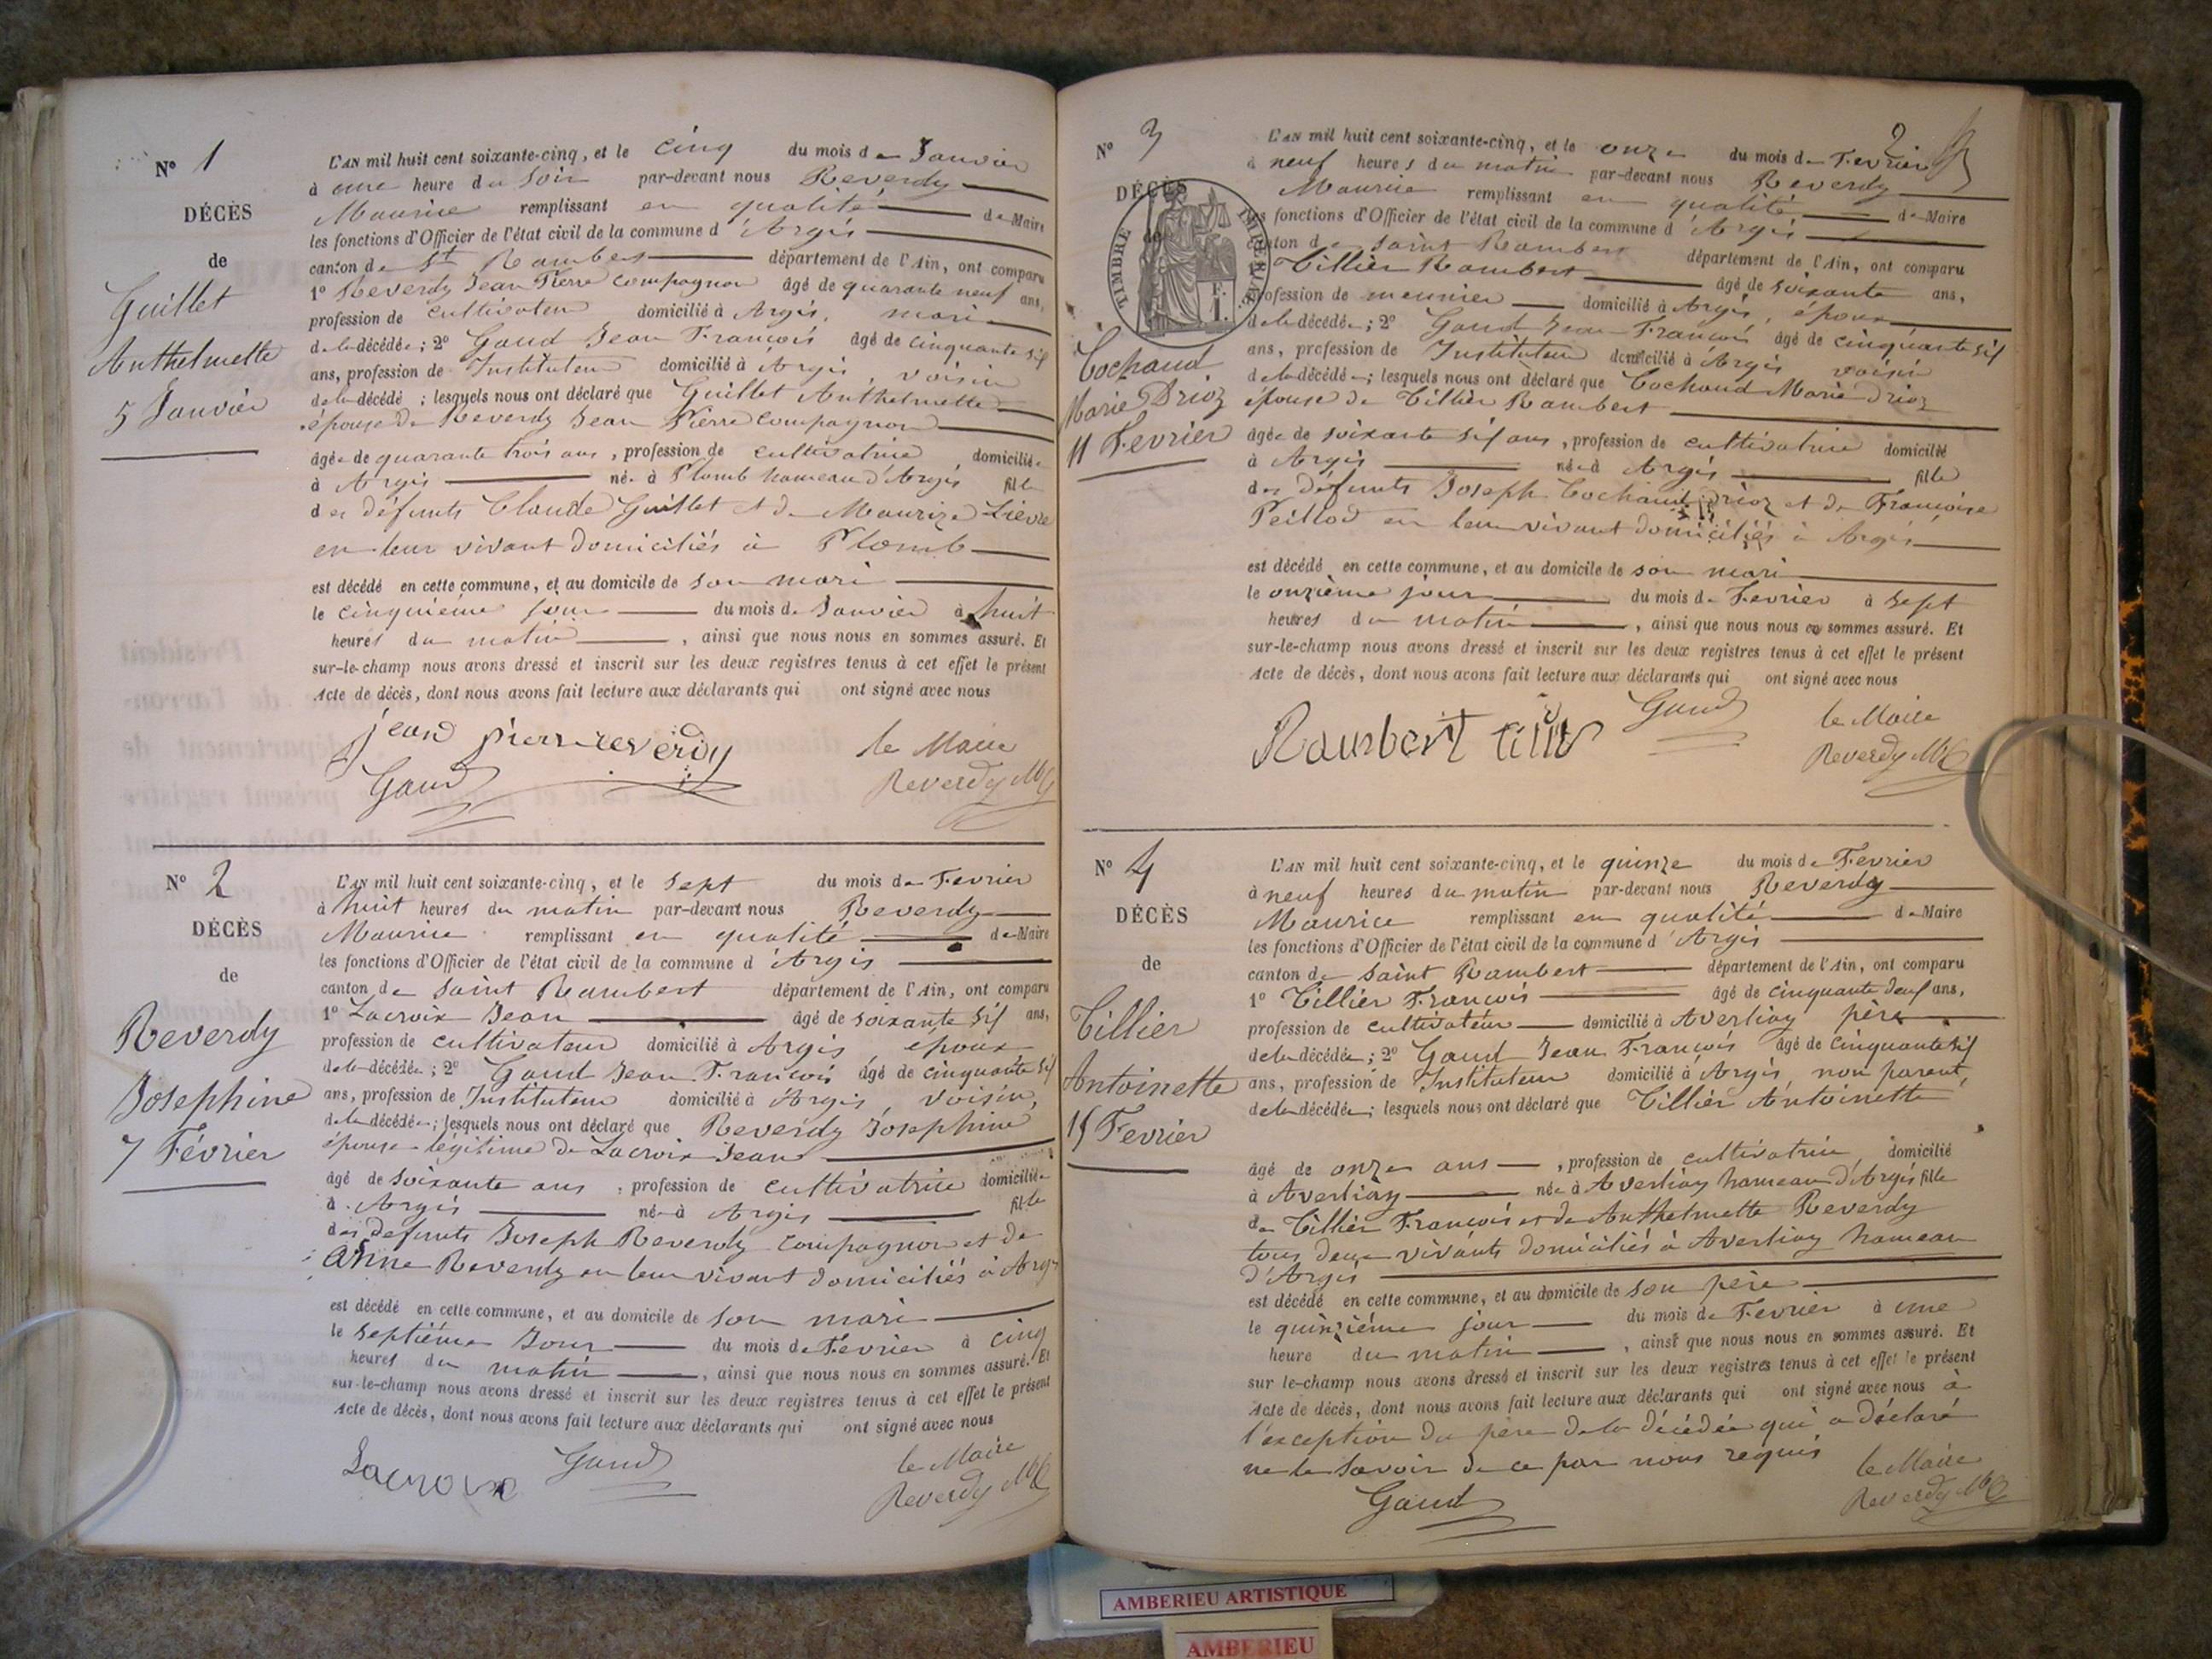 Nº 1
DÉCÈS
de
Guillet
Anthelmette
5 Janvier
L'AN mil huit cent soixante-cinq, et le cinq du mois de Janvier
à une heure du Soir par-devant nous Reverdy
Maurice remplissant en qualité de Maire
les fonctions d'Officier de l'état civil de la commune d'Argis
canton de St Rambert département de l'Ain, ont comparu
1º Reverdy Jean Pierre Compagnon âgé de quarante neuf ans,
profession de cultivateur domicilié à Argis, mari
de la décédée; 2º Gaud Jean François âgé de cinquante six
ans, profession de Instituteur domicilié à Argis, voisin
de la décédé ; lesquels nous ont déclaré que Guillet Anthelmette
épouse de Reverdy Jean Pierre Compagnon
âgée de quarante trois ans, profession de cultivatrice, domiciliée
à Argis née à Plomb hameau d'Argis, fille
des défunts Claude Guillet et de Maurize Lièvre
en leur vivant domiciliés à Plomb
est décédé en cette commune, et au domicile de son mari
le cinquième jour du mois de Janvier à huit
heures du matin, ainsi que nous nous en sommes assuré. Et
sur-le-champ nous avons dressé et inscrit sur les deux registres tenus à cet effet le présent
Acte de décès, dont nous avons fait lecture aux déclarants qui ont signé avec nous
jean pierre reverdy le Maire
Gaud Reverdy
Nº 2
DÉCÈS
de
Reverdy
Josephine
7 Février
L'AN mil huit cent soixante-cinq, et le sept du mois de Fevrier
à huit heures du matin par-devant nous Reverdy
Maurice remplissant en qualité de Maire
les fonctions d'Officier de l'état civil de la commune d'Argis
canton de Saint Rambert département de l'Ain, ont comparu
1º Lacroix Jean âgé de soixante six ans,
profession de cultivateur domicilié à Argis, epoux
de la décédée; 2º Gaud Jean François âgé de cinquante six
ans, profession de Instituteur domicilié à Argis, voisin,
de la décédée; lesquels nous ont déclaré que Reverdy Josephine
épouse légitime de Lacroix Jean
âgé de soixante ans, profession de cultivatrice domiciliée
à Argis née à Argis fille
des defunts Joseph Reverdy Compagnon et de
Anne Reverdy en leur vivant domiciliés à Argis
est décédé en cette commune, et au domicile de son mari
le septième Jour du mois de Fevrier à cinq
heures du matin, ainsi que nous nous en sommes assuré. Et
sur-le-champ nous avons dressé et inscrit sur les deux registres tenus à cet effet le présent
Acte de décès, dont nous avons fait lecture aux déclarants qui ont signé avec nous
Lacroix Gaud le Maire
Reverdy
2
Nº 3
DÉCÈS
de
TIMBRE IMPERIAL
F.
1.
Cochaud
Marie Drioz
11 Fevrier
L'AN mil huit cent soixante-cinq, et le onze du mois de Fevrier
à neuf heures du matin par-devant nous Reverdy
Maurice remplissant en qualité de Maire
les fonctions d'Officier de l'état civil de la commune d'Argis
canton de Saint Rambert département de l'Ain, ont comparu
Tillier Rambert âgé de soixante ans,
profession de meunier domicilié à Argis, époux
de la décédée; 2º Gaud Jean François âgé de cinquante six
ans, profession de Instituteur domicilié à Argis voisin
de la décédée; lesquels nous ont déclaré que Cochaud Marie Drioz
épouse de Tillier Rambert
âgée de soixante six ans, profession de cultivatrice domicilié
à Argis née à Argis fille
des défunts Joseph Cochaud Drioz et de Françoise
Peillod en leur vivant domiciliés à Argis
est décédé en cette commune, et au domicile de son mari
le onzième jour du mois de Fevrier à sept
heures du matin, ainsi que nous nous en sommes assuré. Et
sur-le-champ nous avons dressé et inscrit sur les deux registres tenus à cet effet le présent
Acte de décès, dont nous avons fait lecture aux déclarants qui ont signé avec nous
Rambert Gaud le Maire
Reverdy
Nº 4
DÉCÈS
de
Tillier
Antoinette
15 Fevrier
L'AN mil huit cent soixante-cinq, et le quinze du mois de Fevrier
à neuf heures du matin par-devant nous Reverdy
Maurice remplissant en qualité de Maire
les fonctions d'Officier de l'état civil de la commune d'Argis
canton de Saint Rambert département de l'Ain, ont comparu
1º Tillier François âgé de cinquante deux ans,
profession de cultivateur domicilié à Averliaz père
de la décédée; 2º Gaud Jean François âgé de cinquante six
ans, profession de Instituteur domicilié à Argis, non parent,
de la décédée; lesquels nous ont déclaré que Tillier Antoinette
âgé de onze ans, profession de cultivatrice, domicilié
à Averliaz née à Averliaz hameau d'Argis fille
de Tillier François et de Anthelmette Reverdy
tous deux vivants domiciliés à Averliaz hameau
d'Argis
est décédé en cette commune, et au domicile de son père
le quinzième jour du mois de Fevrier à une
heure du matin, ainsi que nous nous en sommes assuré. Et
sur le-champ nous avons dressé et inscrit sur les deux registres tenus à cet effet le présent
Acte de décès, dont nous avons fait lecture aux déclarants qui ont signé avec nous à
l'exception du père de la décédée qui a déclaré
ne le savoir de ce par nous requis le Maire
Gaud Reverdy
AMBERIEU ARTISTIQUE
AMBERIEU